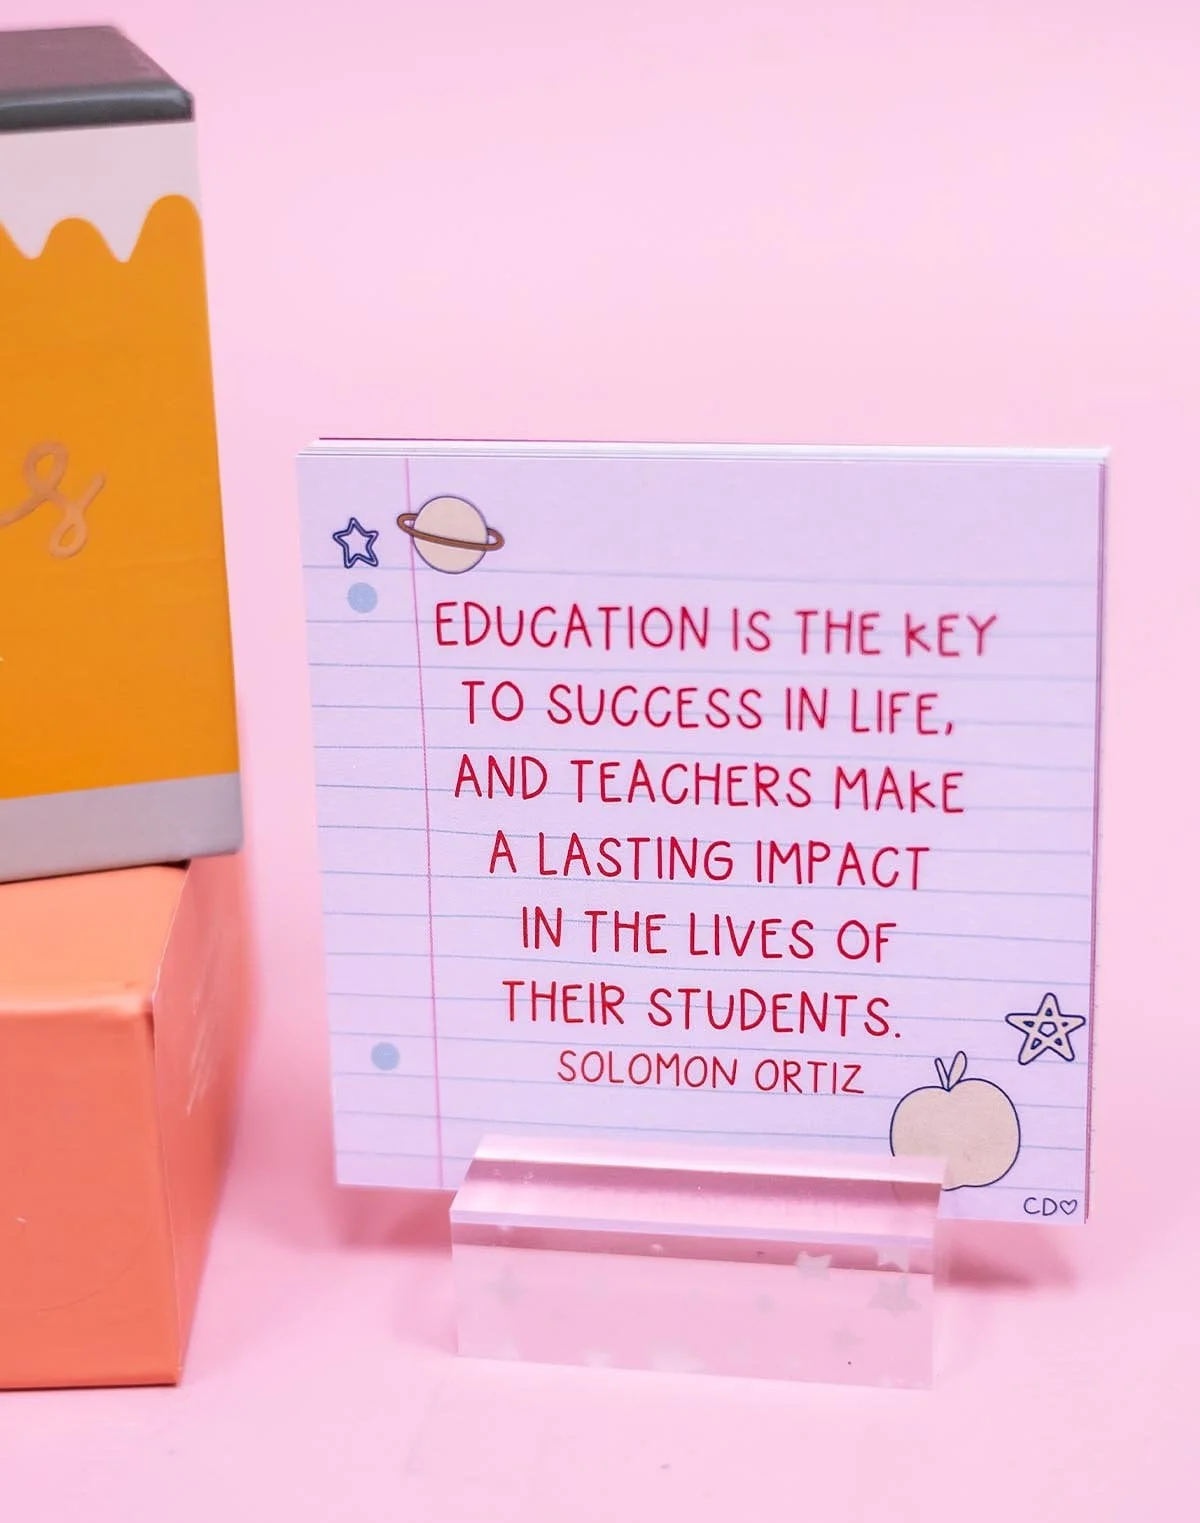 EDUCATION IS THE KEY
TO SUCCESS IN LIFE,
AND TEACHERS MAKE
A LASTING IMPACT
IN THE LIVES OF
THEIR STUDENTS.
SOLOMON ORTIZ
CD♡
s